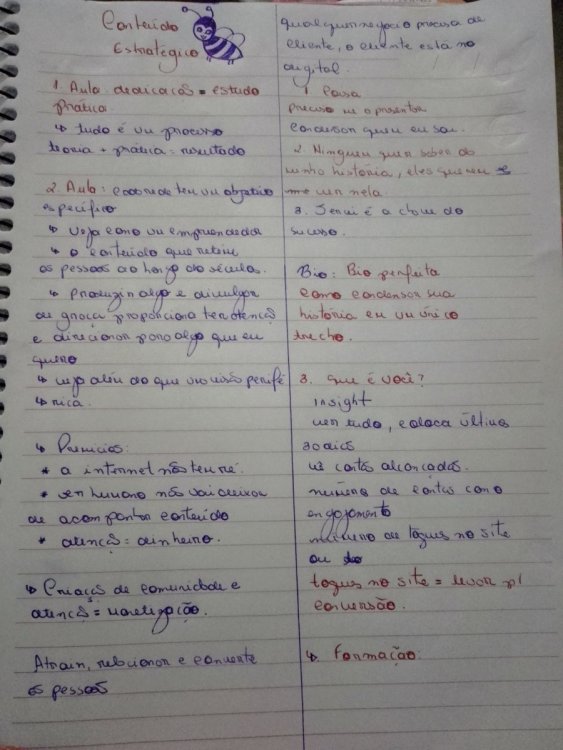 Conteúdo
Estratégico
1 Aula dedicação = estudo
prática.
↳ tudo é um processo
teoria + prática = resultado
2. Aula: cada rede tem um objetivo
específico
↳ veja como um empreendedor
↳ o conteúdo que retém
as pessoas ao longo do séculos.
↳ produzir algo e divulgar
de graça proporciona ter atenção
e direcionar para algo que eu
quero
↳ veja além do que visão perifé
↳ rica.
↳ Premicias:
* a internet não tem ré.
* ser humano não vai deixar
de acompanhar conteúdo
* atenção = dinheiro.
↳ Criação de comunidade e
atenção = monetização.
Atrair, relacionar e converte
as pessoas
qualquer negócio precisa de
cliente, o cliente está no
digital.
1. Coisa
Preciso me apresentar
condensar quem eu sou.
2. Ninguem quer saber da
minha história, eles querem se
me ver nela.
3. Servir é a chave do
sucesso.
Bio: Bio perfeita
como condensar sua
história em um único
trecho.
3. Que é você?
insight
ver tudo, e coloca último
30 dias
contas alcançadas.
número de contas com o
engajamento
número de toques no site
ou do
toques no site = levar p/
conversão.
↳ Formação: